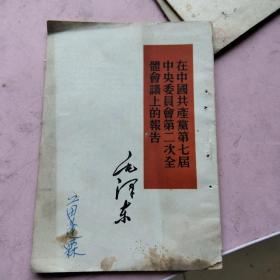 在中國共產黨第七屆
中央委員會第二次全
體會議上的報告
毛澤东